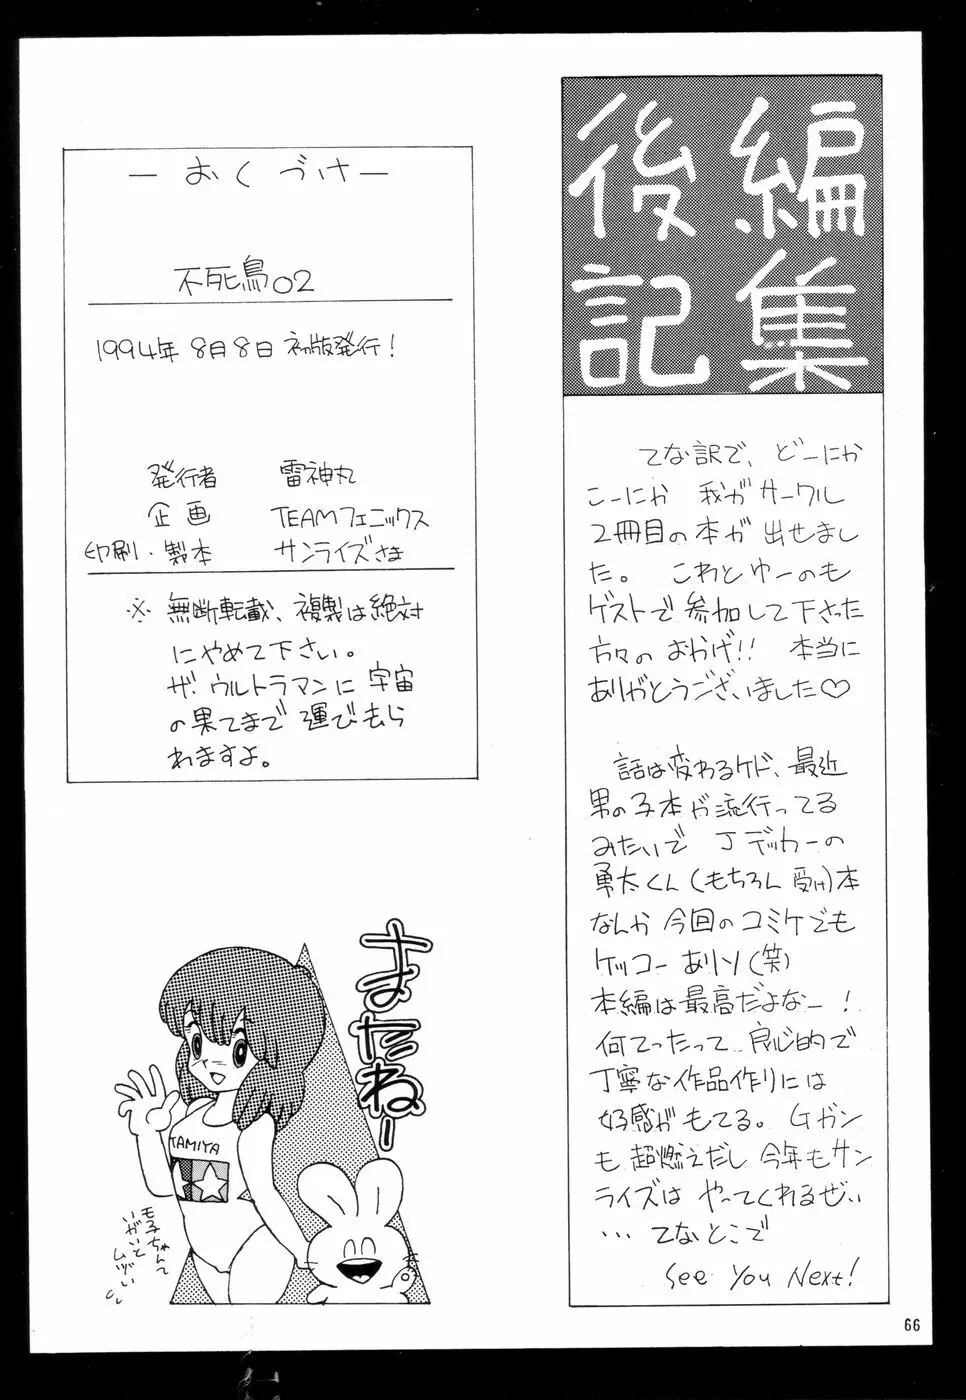 編集
後記
てな訳で、どーにか
こーにか 我がサークル
2冊目の本が 出せまし
た。 これとゆーのも
ゲストで参加して下さった
方々のおかげ!! 本当に
ありがとうございました♡
話は変わるケド、最近
男の子本が流行ってる
みたいで Jデッカーの
勇太くん(もちろん 受け)本
なんか 今回のコミケでも
ケッコー ありソ(笑)
本編は最高だよなー!
何てったって 良心的で
丁寧な作品作りには
好感が もてる。 Gガン
も 超燃えだし 今年もサン
ライズは やってくれるぜぃ
… てなとこで
See You Next!
ーおくづけー
不死鳥02
1994年 8月8日 初版発行!
発行者 雷神丸
企画 TEAMフェニックス
印刷・製本 サンライズさま
※ 無断転載、複製は絶対
にやめて下さい。
ザ・ウルトラマンに 宇宙
の果てまで 運び去ら
れますよ。
またねー
TAMIYA
モ子ちゃんて
いがいと
ムヅい
66